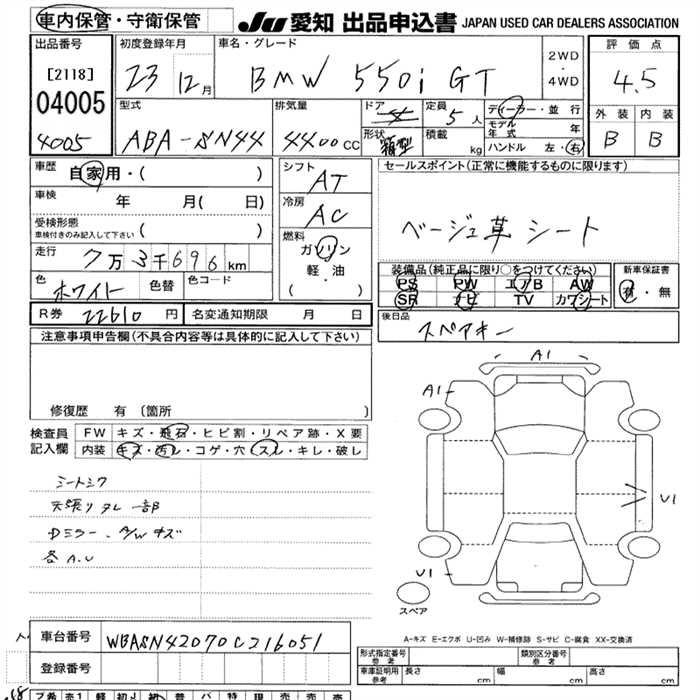 車内保管・守衛保管
JU 愛知 出品申込書 JAPAN USED CAR DEALERS ASSOCIATION
出品番号
[2118]
04005
4005
初度登録年月
23 12月
車名・グレード
BMW 550i GT
2WD
・
4WD
評価点
4.5
外装 内装
B B
型式
ABA-SN44
排気量
4400cc
ドア
4
形状
箱型
定員
5人
積載
kg
ディーラー・並行
モデル年式 年
ハンドル 左・右
車歴
自家用・( )
車検
年 月( 日)
受検形態
車検付きのみ記入して下さい ( )
走行
7万3千696km
色
ホワイト
色替
色コード
シフト
AT
冷房
AC
燃料
ガソリン
軽・油
( ・ )
セールスポイント(正常に機能するものに限ります)
ベージュ革シート
装備品(純正品に限り○をつけてください)
PS PW エアB AW
SR ナビ TV カワシート
新車保証書
有・無
R券 22610円
名変通知期限 月 日
後日品
スペアキー
注意事項申告欄(不具合内容等は具体的に記入して下さい)
修復歴 有 (箇所 )
検査員
記入欄
FW キズ・飛石・ヒビ割・リペア跡・X要
内装 キズ・汚レ・コゲ・穴・スレ・キレ・破レ
シートシワ
天張りタレ一部
Dミラー、A/Wキズ
各A.U
A1
A1
U1
U1
スペア
A-キズ E-エクボ U-凹み W-補修跡 S-サビ C-腐食 XX-交換済
車台番号
WBASN42070C216051
登録番号
形式指定番号
参考
類別区分番号
参考
車庫証明用
参考
長さ cm 幅 cm 高さ cm